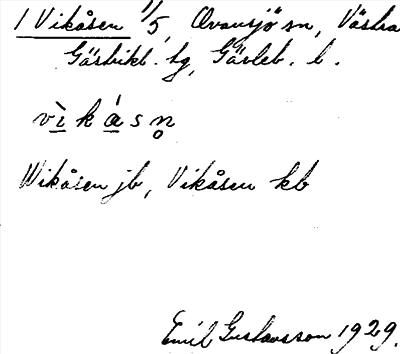 1 Vikåsen 1/5, Ovansjö sn, Västra
Gästrikl. hg, Gävleb. l.
vìkás̩n̥
Wikåsen jb, Vikåsen kb
Emil Gustavsson 1929.